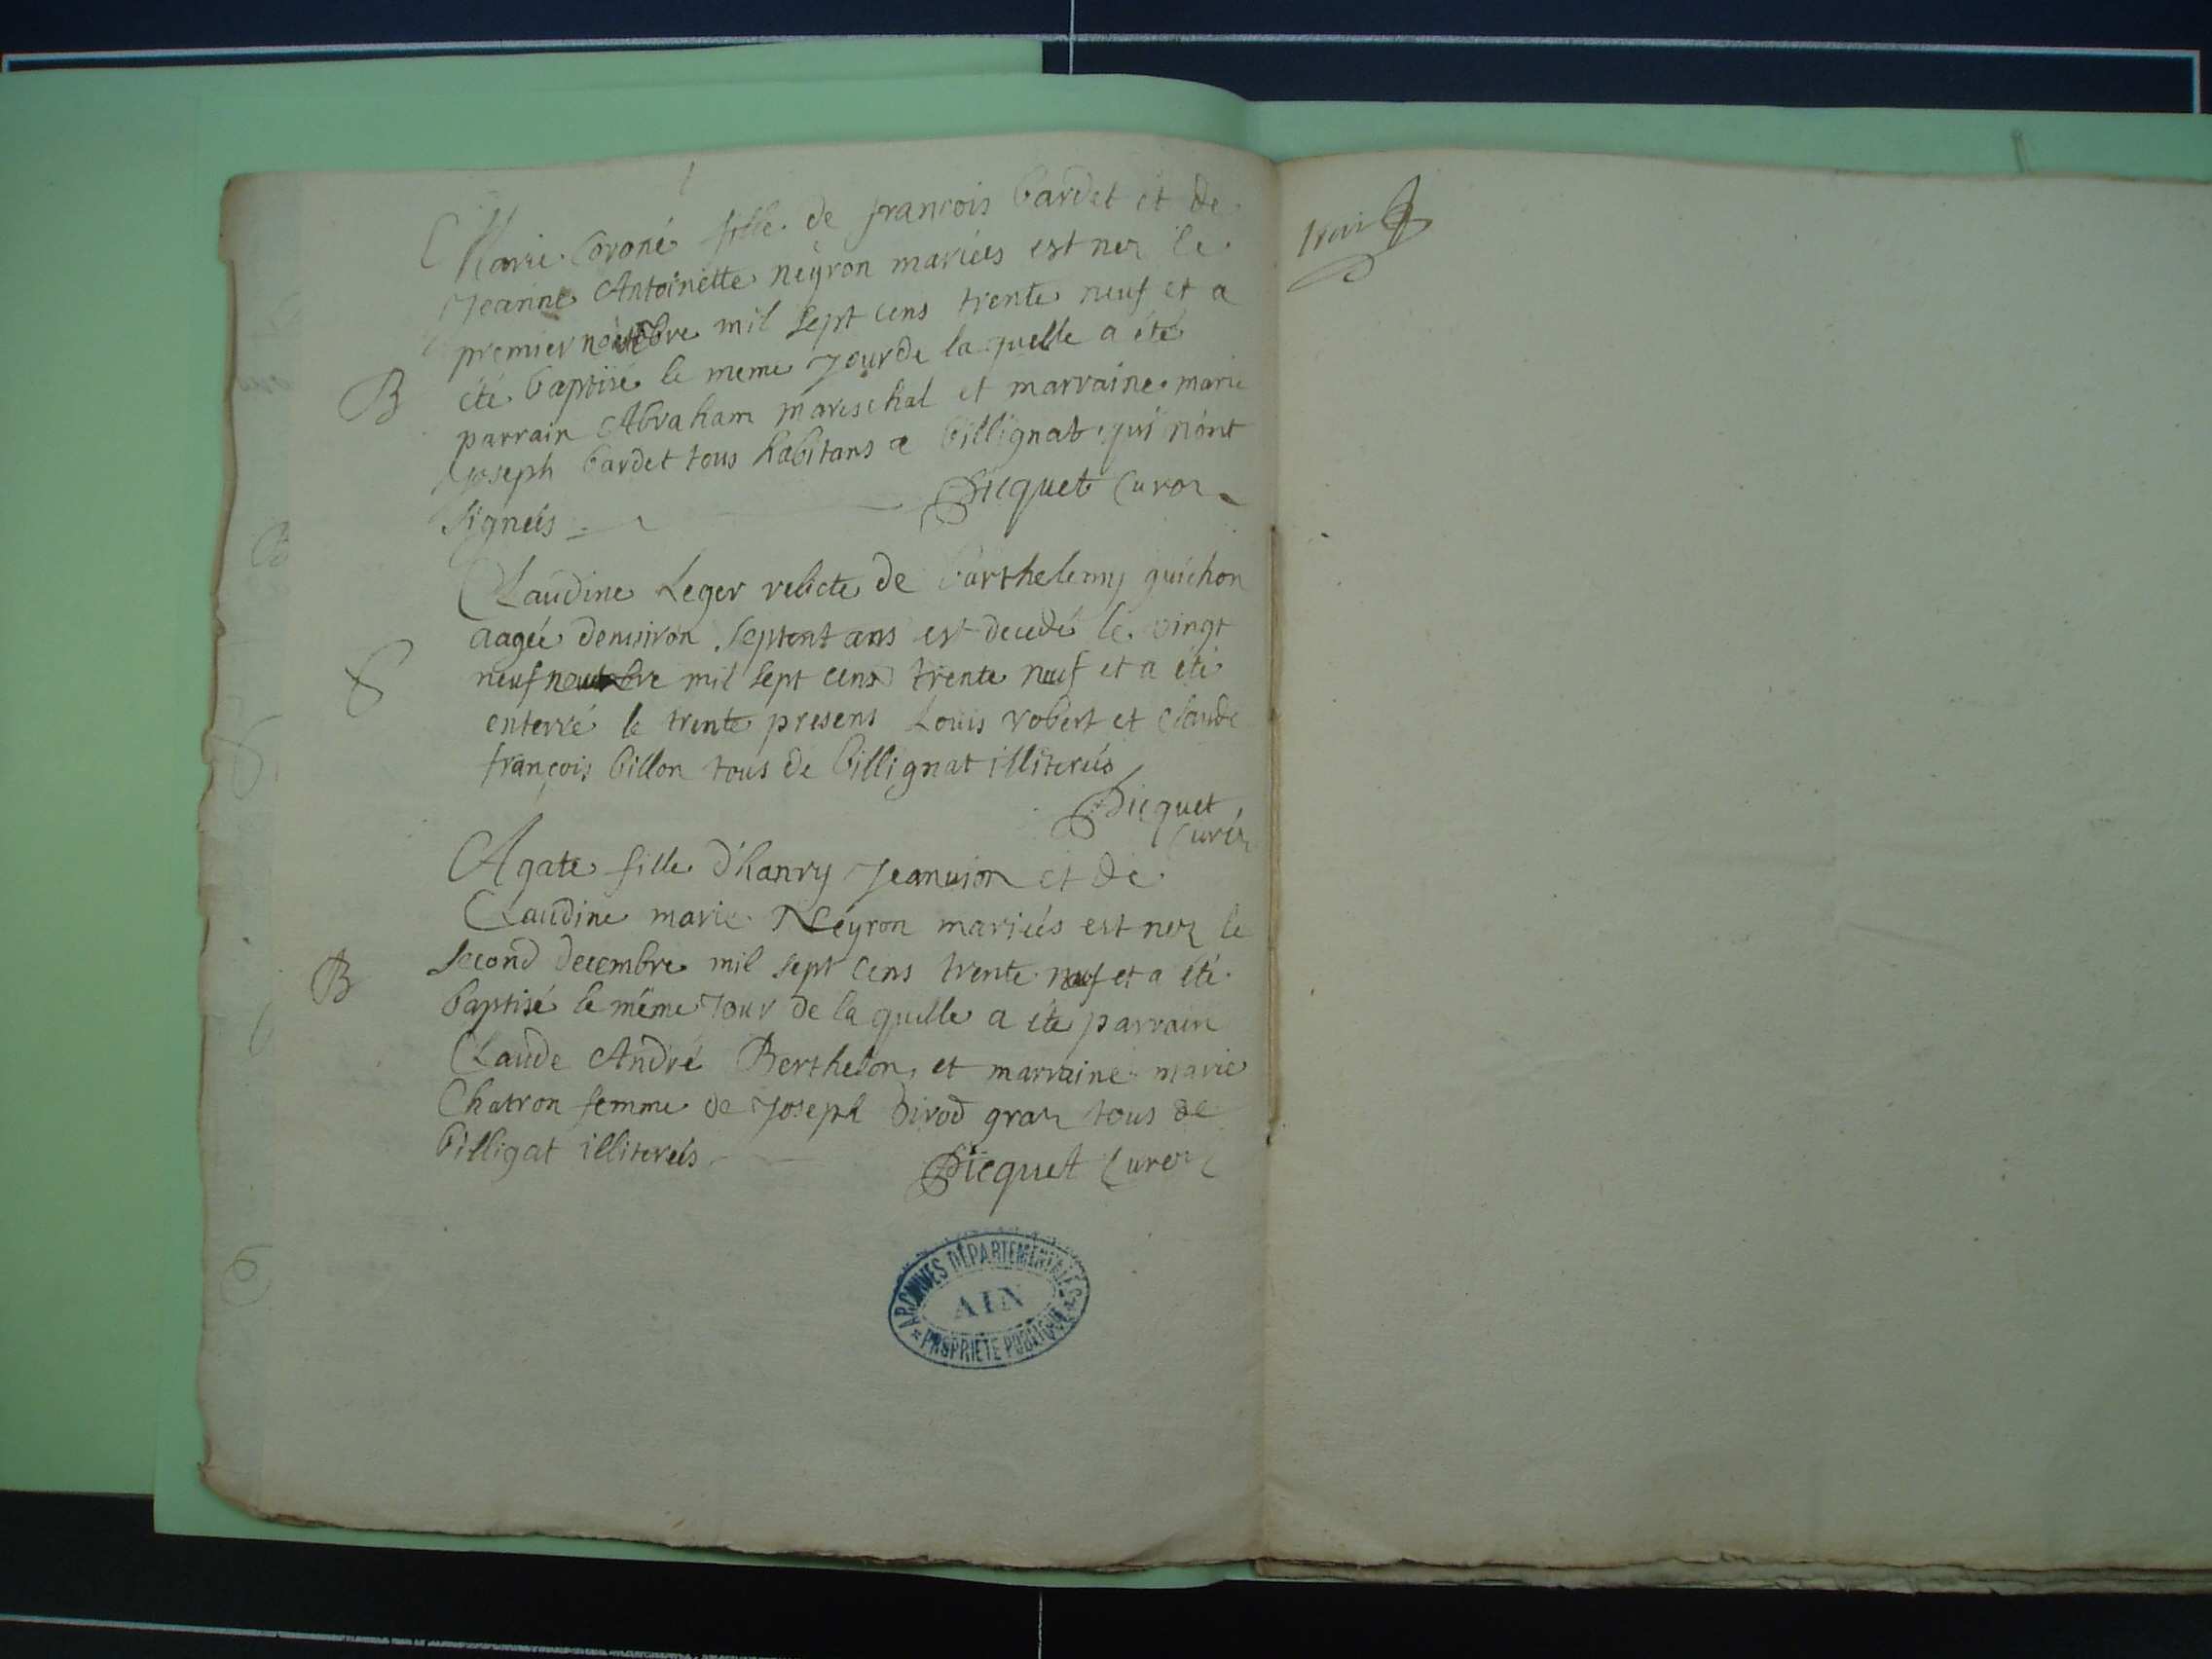 Marie Coroné fille de francois bardet et de
Jeanne Antoinette neyron mariées est nez le
premier mil sept cens trente neuf et a
B
été baptisé le meme Jour de la quelle a été
parrain Abraham mareschal et marraine marie
Joseph bardet tous habitans a billignat qui n'ont
signeés Picquet Curez
Claudine Leger relicte de barthelemy guichon
aagée denuiron septent ans est decedé le vingt
S
neuf mil sept cens trente neuf et a été
enterré le trente presens Louis robert et Claude
françois billon tous de billignat illitereés
Picquet
Curéz
Agate fille d'hanry Jeanuion et de
Claudine marie Neyron marieés est nez le
B
second decembre mil sept cens trente neuf et a été
baptisé le même Jour de la quelle a éte parrain
Claude André Berthelon et marraine marie
Chatron femme de Joseph birod graz tous de
billigat illitereés Picquet Curez
ARCHIVES DÉPARTEMENTALES
AIN
* PROPRIÉTÉ PUBLIQUE *
trois